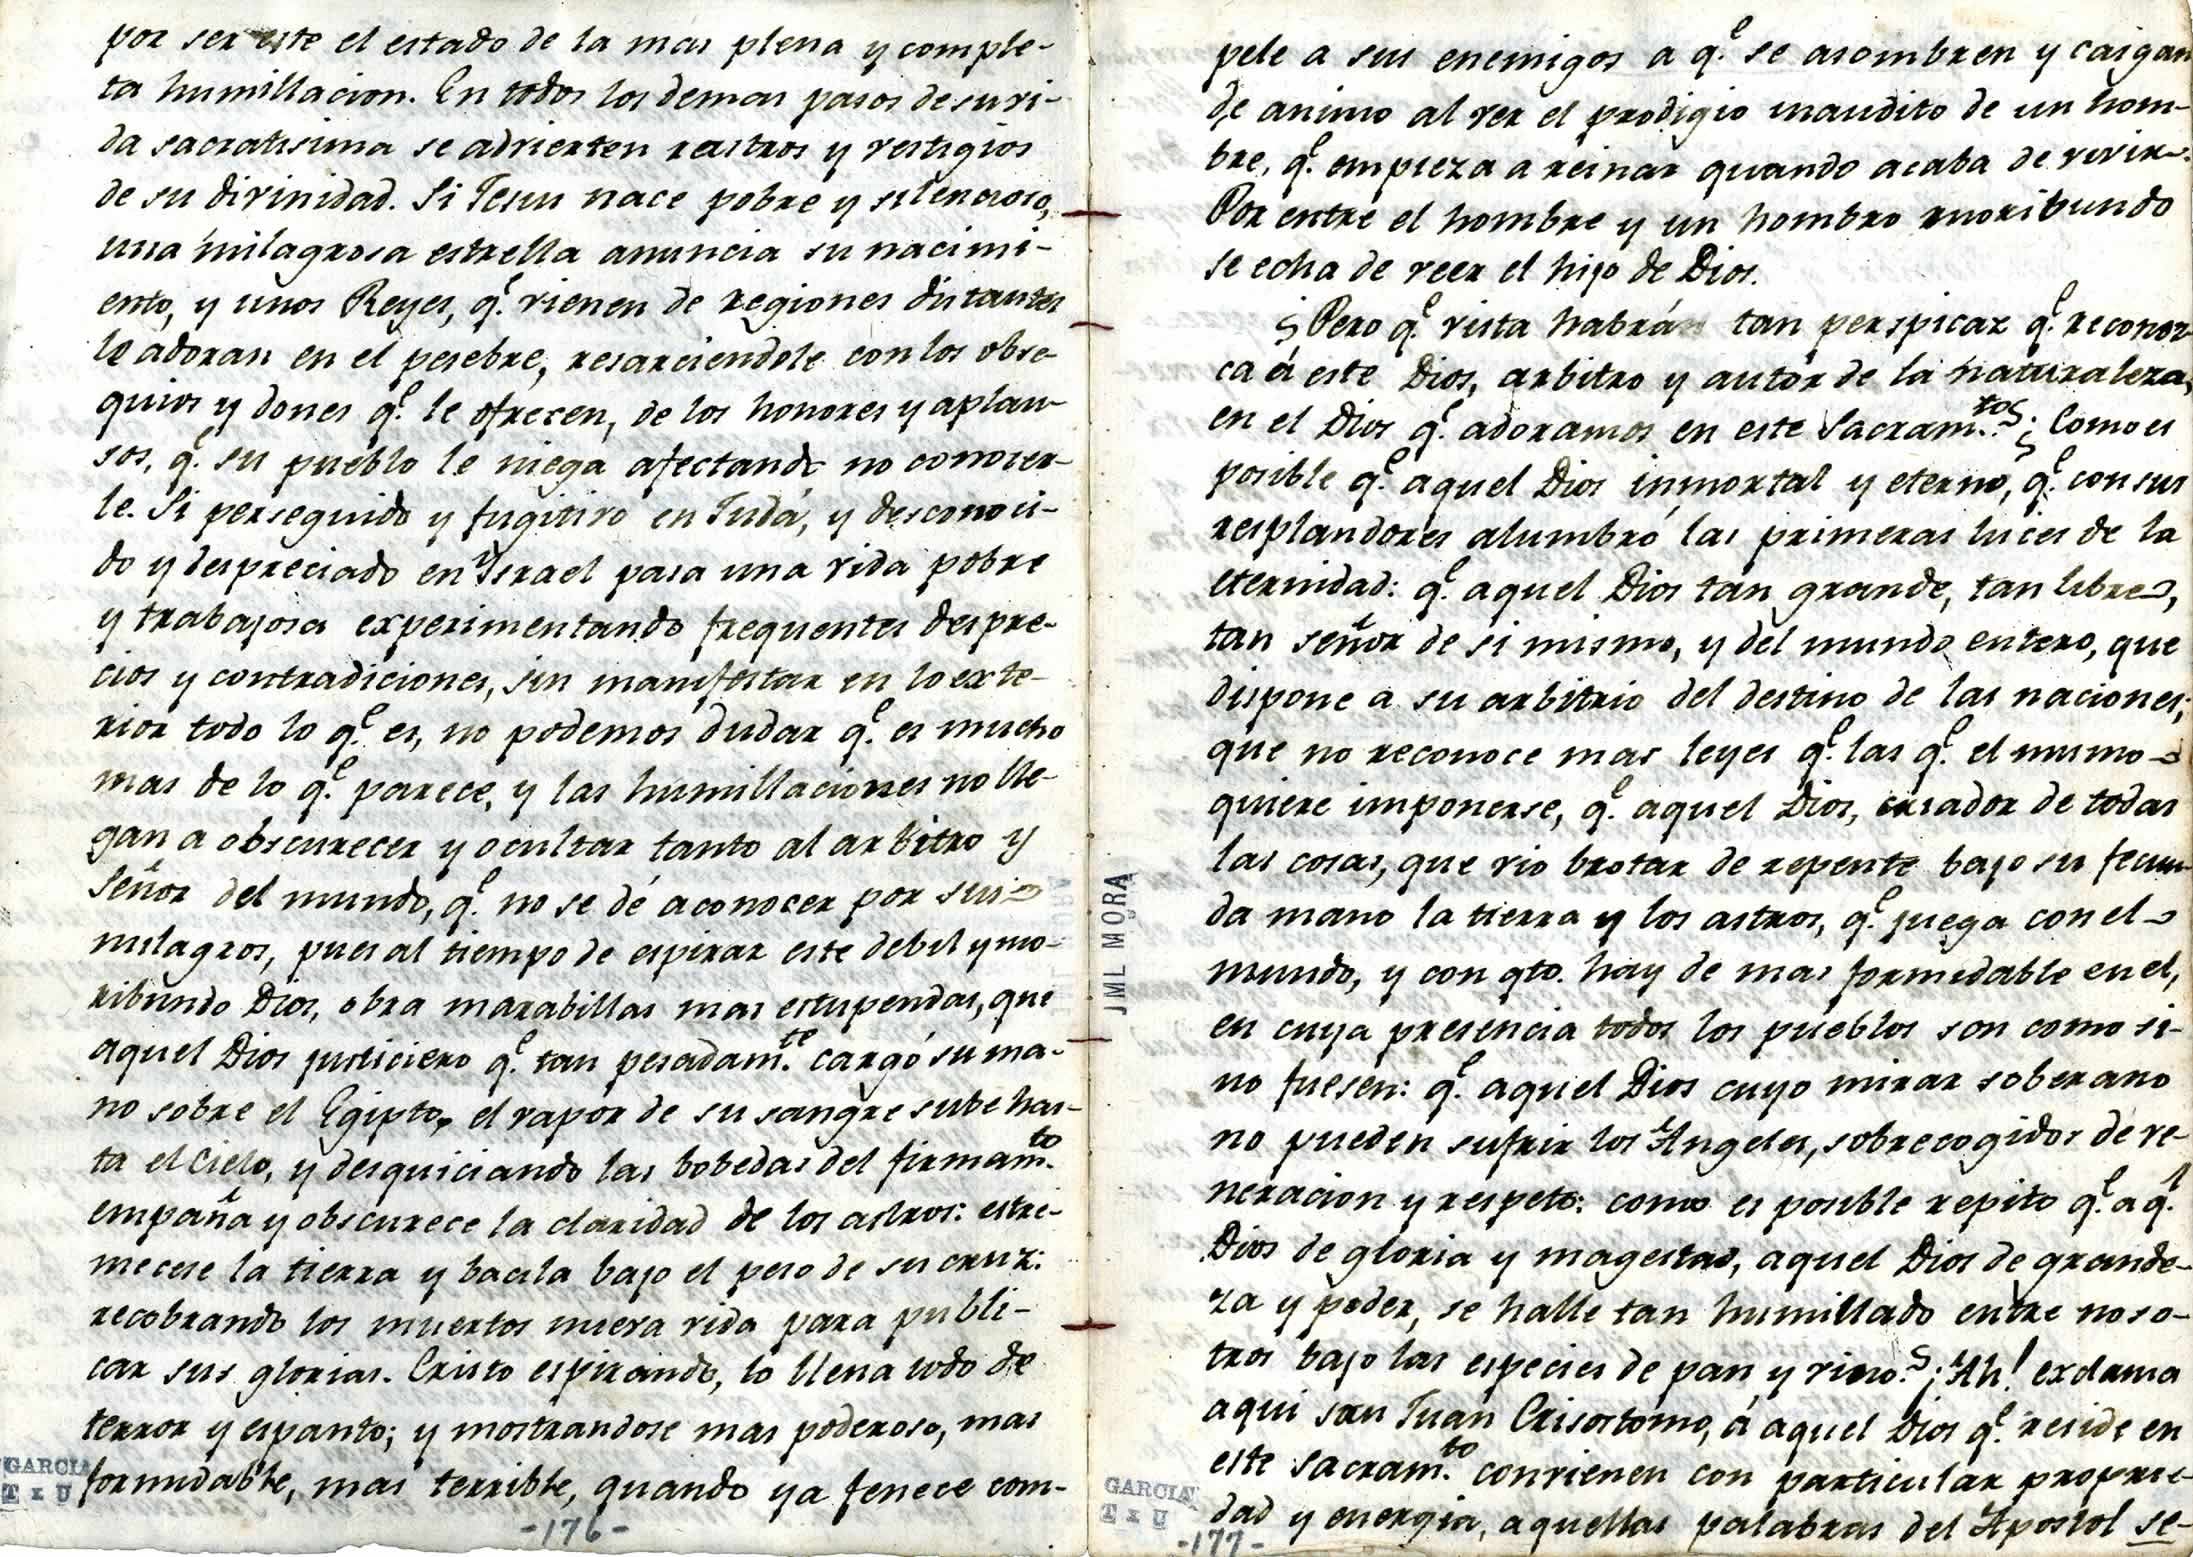 por ser este el estado de la mas plena y comple-
ta humillacion. En todos los demas pasos de su vi-
da sacratisima se advierten rastros y vestigios
de su divinidad. Si Jesus nace pobre y silencioso,
una milagrosa estrella anuncia su nacimi-
ento, y unos Reyes, q.e vienen de regiones distantes
le adoran en el pesebre, resarciendole con los obse-
quios y dones q.e le ofrecen, de los honores y aplau-
sos, q.e su pueblo le niega afectando no conocer-
le. Si perseguido y fugitivo en Judá, y desconoci-
do y despreciado en Israel pasa una vida pobre
y trabajosa experimentando frequentes despre-
cios y contradiciones, sin manifestar en lo exte-
rior todo lo q.e es, no podemos dudar q.e es mucho
mas de lo q.e parece, y las humillaciones no lle-
gan a obscurecer y ocultar tanto al arbitro y
Señor del mundo, q.e no se dé a conocer por sus
milagros, pues al tiempo de espirar este debil y mo-
ribundo Dios, obra marabillas mas estupendas, que
aquel Dios justiciero q.e tan pesadam.te cargó su ma-
no sobre el Egipto, el vapor de su sangre sube has-
ta el Cielo, y desquiciando las bobedas del firmam.to
empaña y obscurece la claridad de los astros: estre-
mecese la tierra y bacila bajo el peso de su cruz:
recobrando los muertos nueva vida para publi-
car sus glorias. Cristo espirando, lo llena todo de
terror y espanto; y mostrandose mas poderoso, mas
formidable, mas terrible, quando ya fenece com-
GARCIA
T x U
-176-
JML MORA
pele a sus enemigos a q.e se asombren y caigan
de animo al ver el prodigio inaudito de un hom-
bre, q.e empieza a reinar quando acaba de vivir.
Por entre el hombre y un hombro moribundo
se echa de veer el hijo de Dios.
¿Pero q.e vista habrá tan perspicaz q.e reconoz-
ca á este Dios, arbitro y autor de la naturaleza,
en el Dios q.e adoramos en este Sacram.to? ¿Como es
posible q.e aquel Dios inmortal y eterno, q.e con sus
resplandores alumbró las primeras luces de la
eternidad: q.e aquel Dios tan grande, tan libre,
tan señor de si mismo, y del mundo entero, que
dispone a su arbitrio del destino de las naciones;
que no reconoce mas leyes q.e las q.e el mismo
quiere imponerse, q.e aquel Dios, criador de todas
las cosas, que vio brotar de repente bajo su fecun-
da mano la tierra y los astros, q.e juega con el
mundo, y con qto. hay de mas formidable en el,
en cuya presencia todos los pueblos son como si-
no fuesen: q.e aquel Dios cuyo mirar soberano
no pueden sufrir los Angeles, sobrecogidos de ve-
neracion y respeto: como es posible repito q.e aq.l
Dios de gloria y magestad, aquel Dios de grande-
za y poder, se halle tan humillado entre noso-
tros bajo las especies de pan y vino? ¡Ah! exclama
aqui san Juan Crisostomo, á aquel Dios q.e reside en
este sacram.to convienen con particular proprie-
dad y energia, aquellas palabras del Apostol se-
GARCIA
T x U
-177-